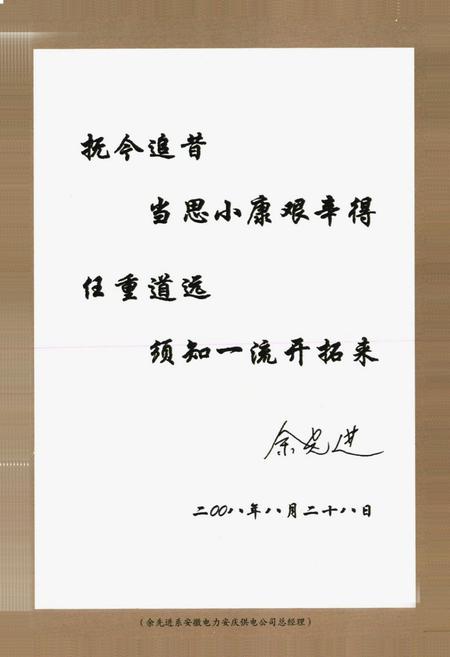 抚今追昔
当思小康艰辛得
任重道远
须知一流开拓来
余先进
二〇〇八年八月二十八日
(余先进系安徽电力安庆供电公司总经理)